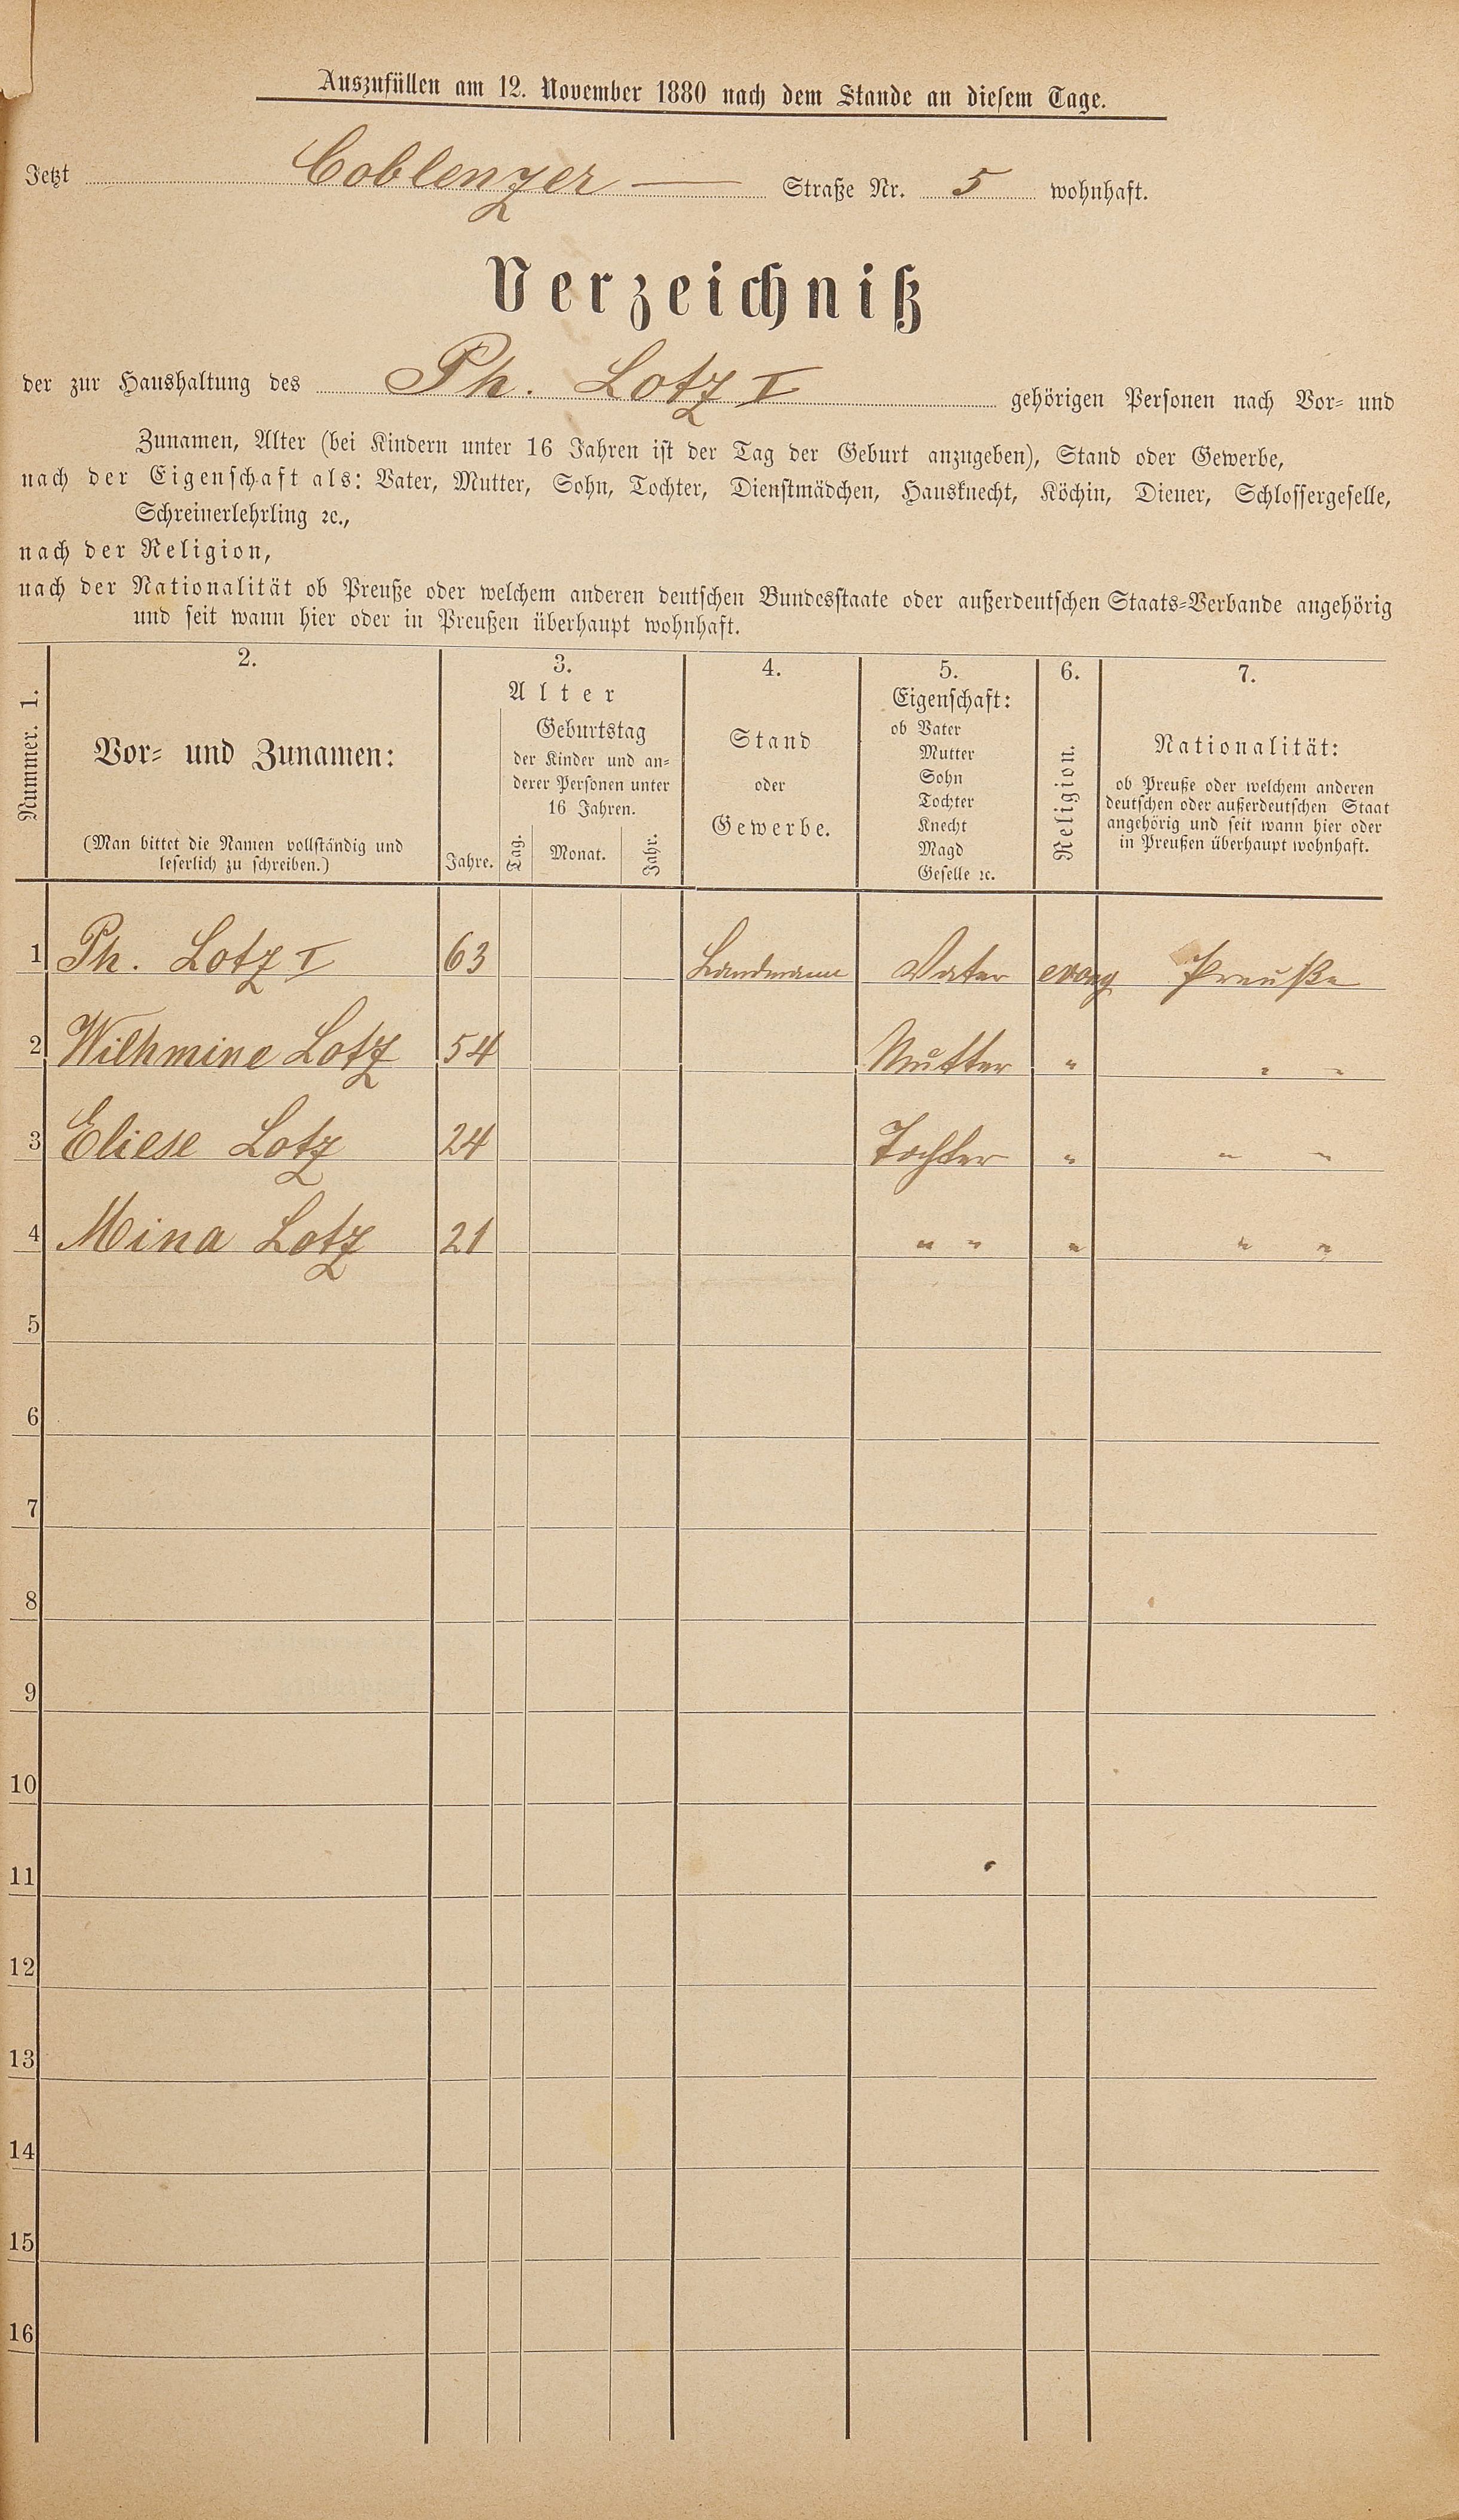 Auszufüllen am 12. November 1880 nach dem Stande an diesem Tage.
Jetzt Coblenzer — Straße Nr. 5 wohnhaft.
Verzeichniß
der zur Haushaltung des Ph. Lotz I gehörigen Personen nach Vor- und
Zunamen, Alter (bei Kindern unter 16 Jahren ist der Tag der Geburt anzugeben), Stand oder Gewerbe,
nach der Eigenschaft als: Vater, Mutter, Sohn, Tochter, Dienstmädchen, Hausknecht, Köchin, Diener, Schlossergeselle,
Schreinerlehrling ꝛc.,
nach der Religion,
nach der Nationalität ob Preuße oder welchem anderen deutschen Bundesstaate oder außerdeutschen Staats-Verbande angehörig
und seit wann hier oder in Preußen überhaupt wohnhaft.
Nummer. 1.
2.
Vor- und Zunamen:
(Man bittet die Namen vollständig und
leserlich zu schreiben.)
3.
Alter
Jahre.
Geburtstag
der Kinder und an-
derer Personen unter
16 Jahren.
Tag. Monat. Jahr.
4.
Stand
oder
Gewerbe.
5.
Eigenschaft:
ob Vater
Mutter
Sohn
Tochter
Knecht
Magd
Geselle ꝛc.
6.
Religion.
7.
Nationalität:
ob Preuße oder welchem anderen
deutschen oder außerdeutschen Staat
angehörig und seit wann hier oder
in Preußen überhaupt wohnhaft.
1 Ph. Lotz I 63 Landmann Vater evang Preuße
2 Wilhmine Lotz 54 Mutter " " "
3 Eliese Lotz 24 Tochter " " "
4 Mina Lotz 21 " " " " "
5
6
7
8
9
10
11
12
13
14
15
16